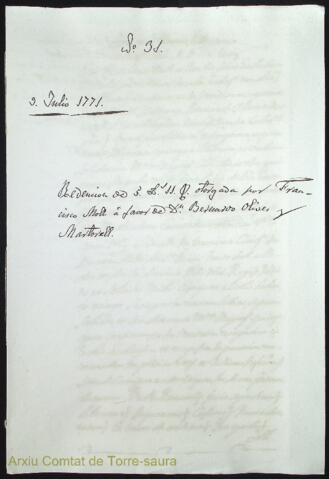 No 31.
3. Julio 1771.
Redencion de 5 Ls 11 otorgada por Fran-
cisco Moll á favor de Dn Bernardo Olives y
Martorell.
Arxiu Comtat de Torre-saura